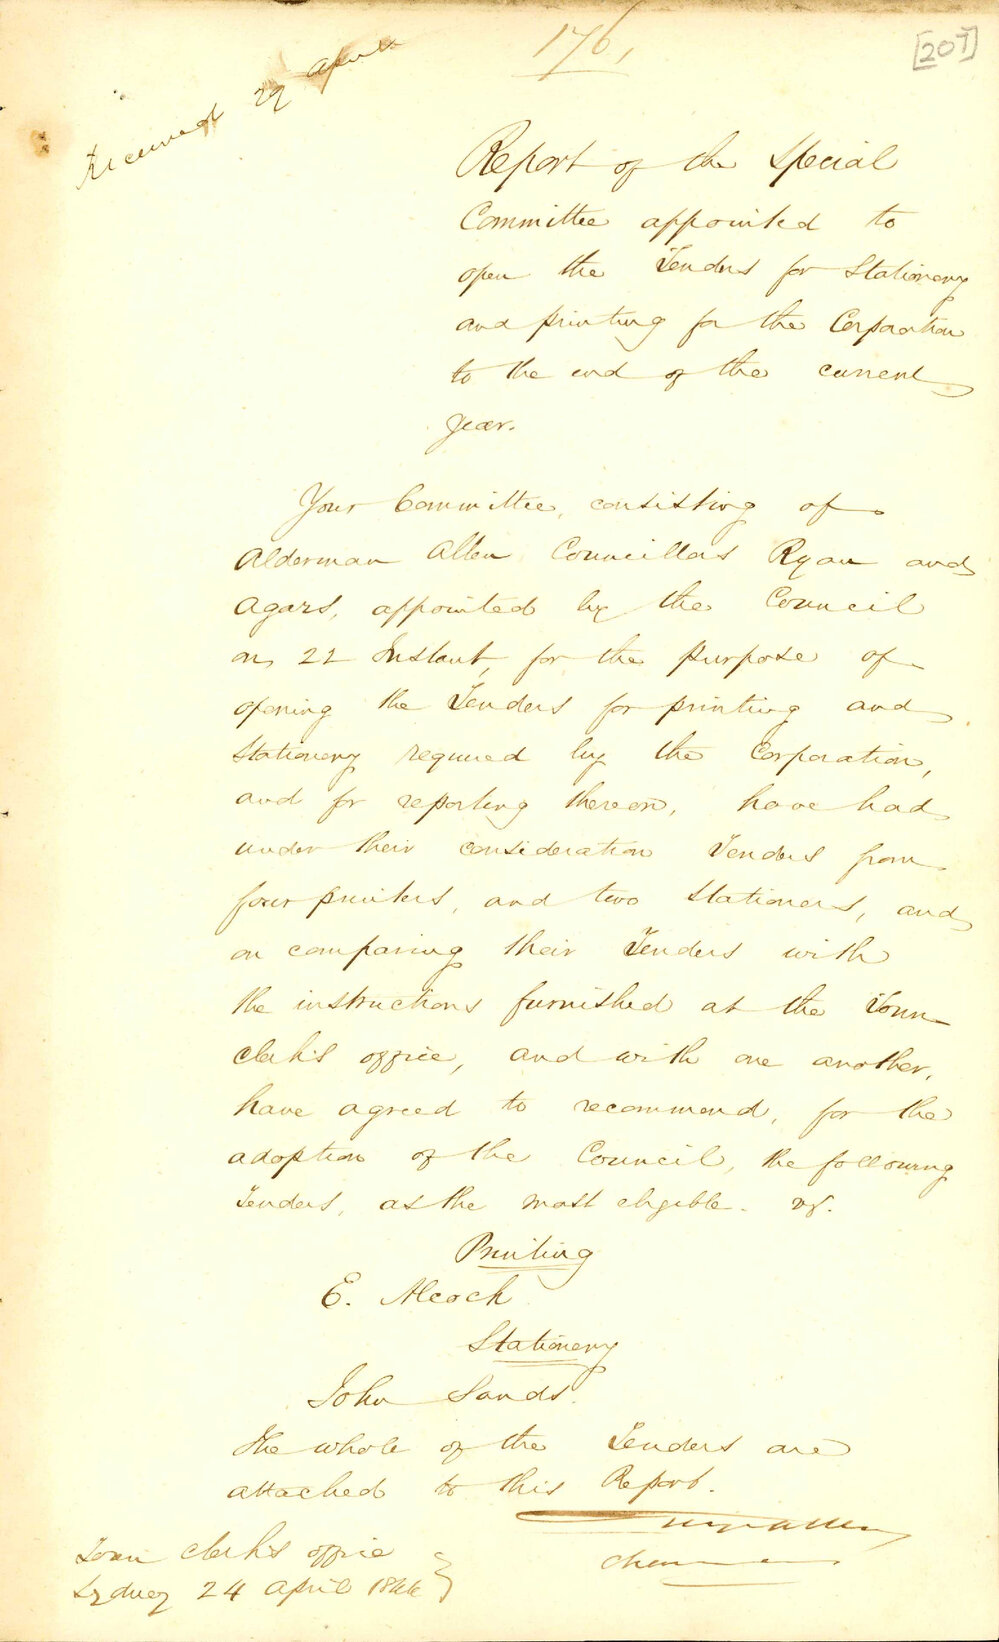 176,
[207]
Received 29 April
Report of the Special
Committee appointed to
open the Tenders for Stationery
and printing for the Corporation
to the end of the current
year.
Your Committee, consisting of
Alderman Allen Councillors Ryan and
Agars, appointed by the Council
on 22 Instant, for the purpose of
opening the Tenders for printing and
Stationery required by the Corporation,
and for reporting thereon, have had
under their consideration Tenders from
four printers, and two Stationers, and
on comparing their Tenders with
the instructions furnished at the Town
Clerk's office, and with one another,
have agreed to recommend, for the
adoption of the Council, the following
Tenders, as the most eligible. vz.
Printing
E. Alcock
Stationery
John Sands.
The whole of the Tenders are
attached to this Report.
Allen
Chairman
Town Clerk's office
Sydney 24 April 1844